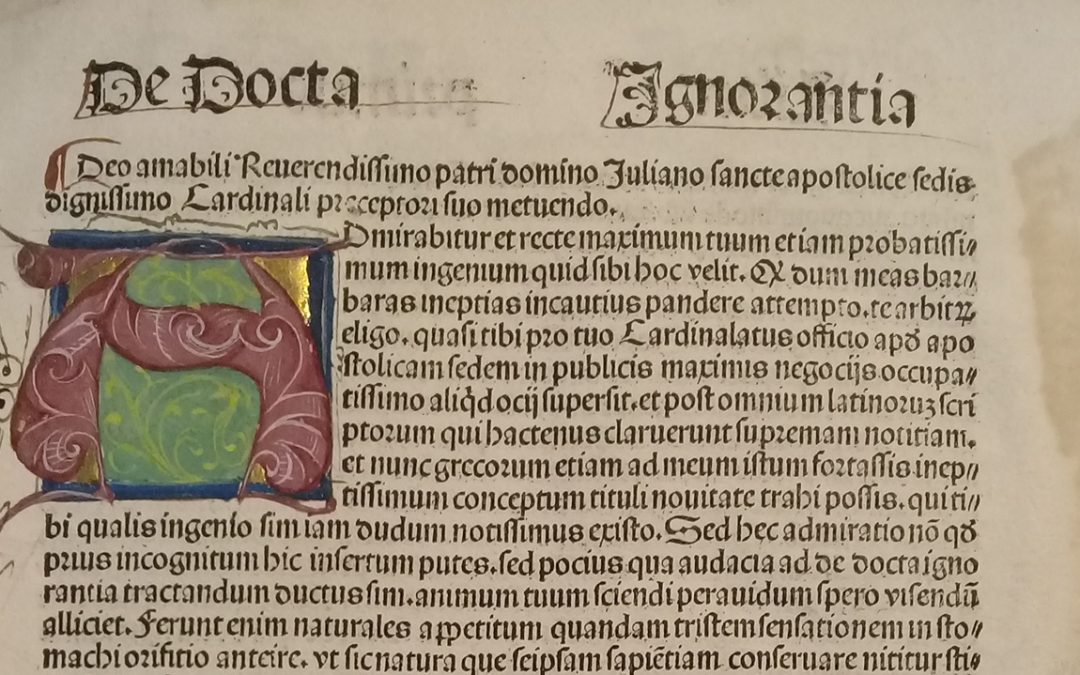 De Docta Ignorantia
Deo amabili Reuerendissimo patri domino Juliano sancte apostolice sedis
dignissimo Cardinali preceptori suo metuendo.
ADmirabitur et recte maximum tuum etiam probatissi//
mum ingenium quid sibi hoc velit. Qꝫ dum meas bar//
baras ineptias incautius pandere attempto. te arbitrꝝ
eligo. quasi tibi pro tuo Cardinalatus officio apđ apo
stolicam sedem in publicis maximis negocijs occupa//
tissimo aliq̇d ocij supersit. et post omnium latinoruꝫ scri
ptorum qui hactenus claruerunt supremam notitiam.
et nunc grecorum etiam ad meum istum fortassis inep//
tissimum conceptum tituli nouitate trahi possis. qui ti//
bi qualis ingenio sim iam dudum notissimus existo. Sed hec admiratio nō qđ
prius incognitum hic insertum putes. sed pocius qua audacia ad de docta igno
rantia tractandum ductus sim. animum tuum sciendi perauidum spero visendū
alliciet. Ferunt enim naturales appetitum quandam tristem sensationem in sto//
machi orifitio anteire. vt sic natura que seipsam sapiētiam conseruare nititur sti//